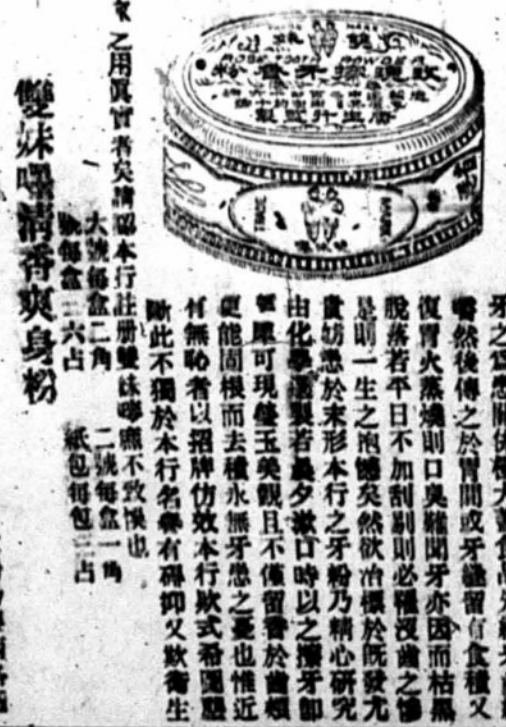 雙妹
MARK
ROSE TOOTH POWDER
玫瑰擦牙香粉
廣生行監製
MARK
牙之爲患關係極大蓋食品先經
然後傳之於胃間或牙縫留有食積又
復胃火蒸燒則口臭難聞牙亦因而枯黑
脫落若平日不加刮剔則必罹沒齒之憾
是則一生之抱憾矣然欲治標於既發尤
貴妨患於未形本行之牙粉乃精心研究
由化學選製若晨夕漱口時以之擦牙卽
可現瑩玉美觀且不僅留香於齒頰
更能固根而去積永無牙患之憂也惟近
有無恥者以招牌仿效本行欵式希圖
此不獨於本行名譽有碍抑又欺衛生
家之用眞實者矣請認本行註册雙妹嘜庶不致悞也
大號每盒二角 二號每盒一角
號每盒二六占 紙包每包三占
雙妹嘜清香爽身粉